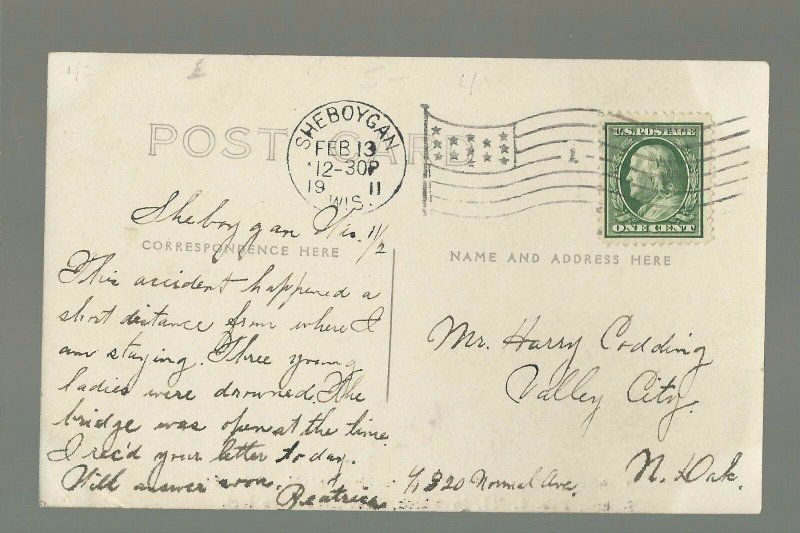 POST CARD
SHEBOYGAN
FEB 13
12-30P
19 11
WIS.
U.S. POSTAGE
ONE CENT
Sheboygan Wis. 1/2
CORRESPONDENCE HERE
NAME AND ADDRESS HERE
This accident happened a
short distance from where I
am staying. Three young
ladies were drowned. The
bridge was open at the time.
I rec'd your letter today.
Will answer soon.
Beatrice
Mr. Harry Codding
Valley City.
N. Dak.
320 Normal Ave.